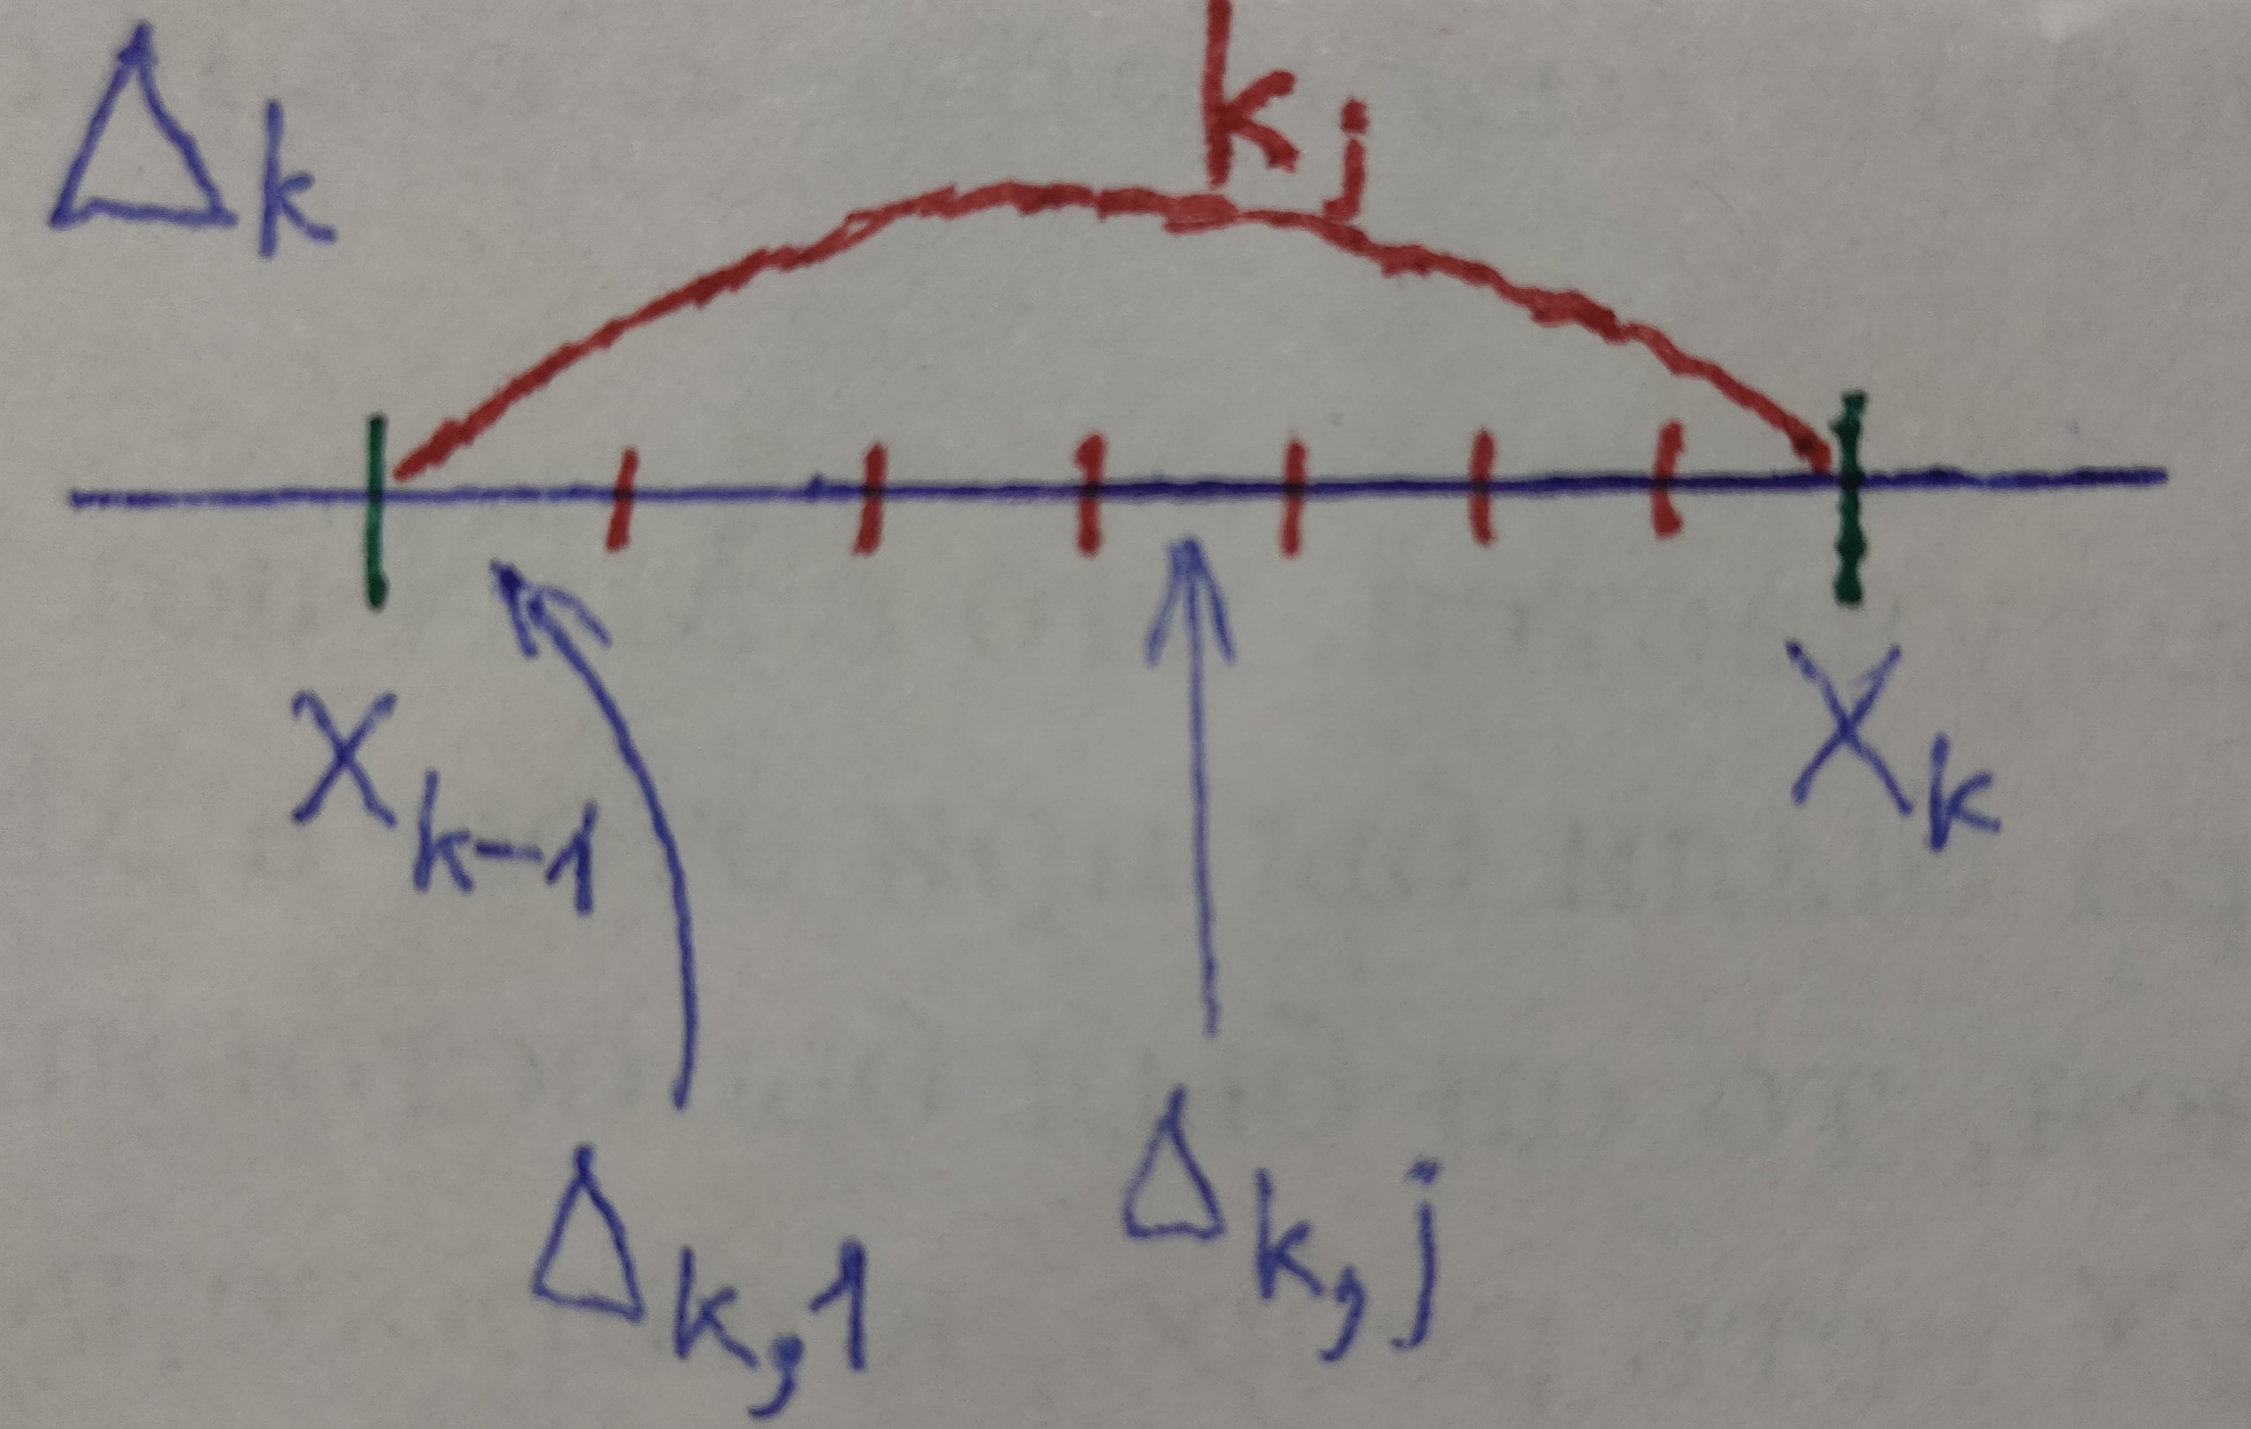 Δk
kj
xk-1
xk
Δk,1
Δk,j